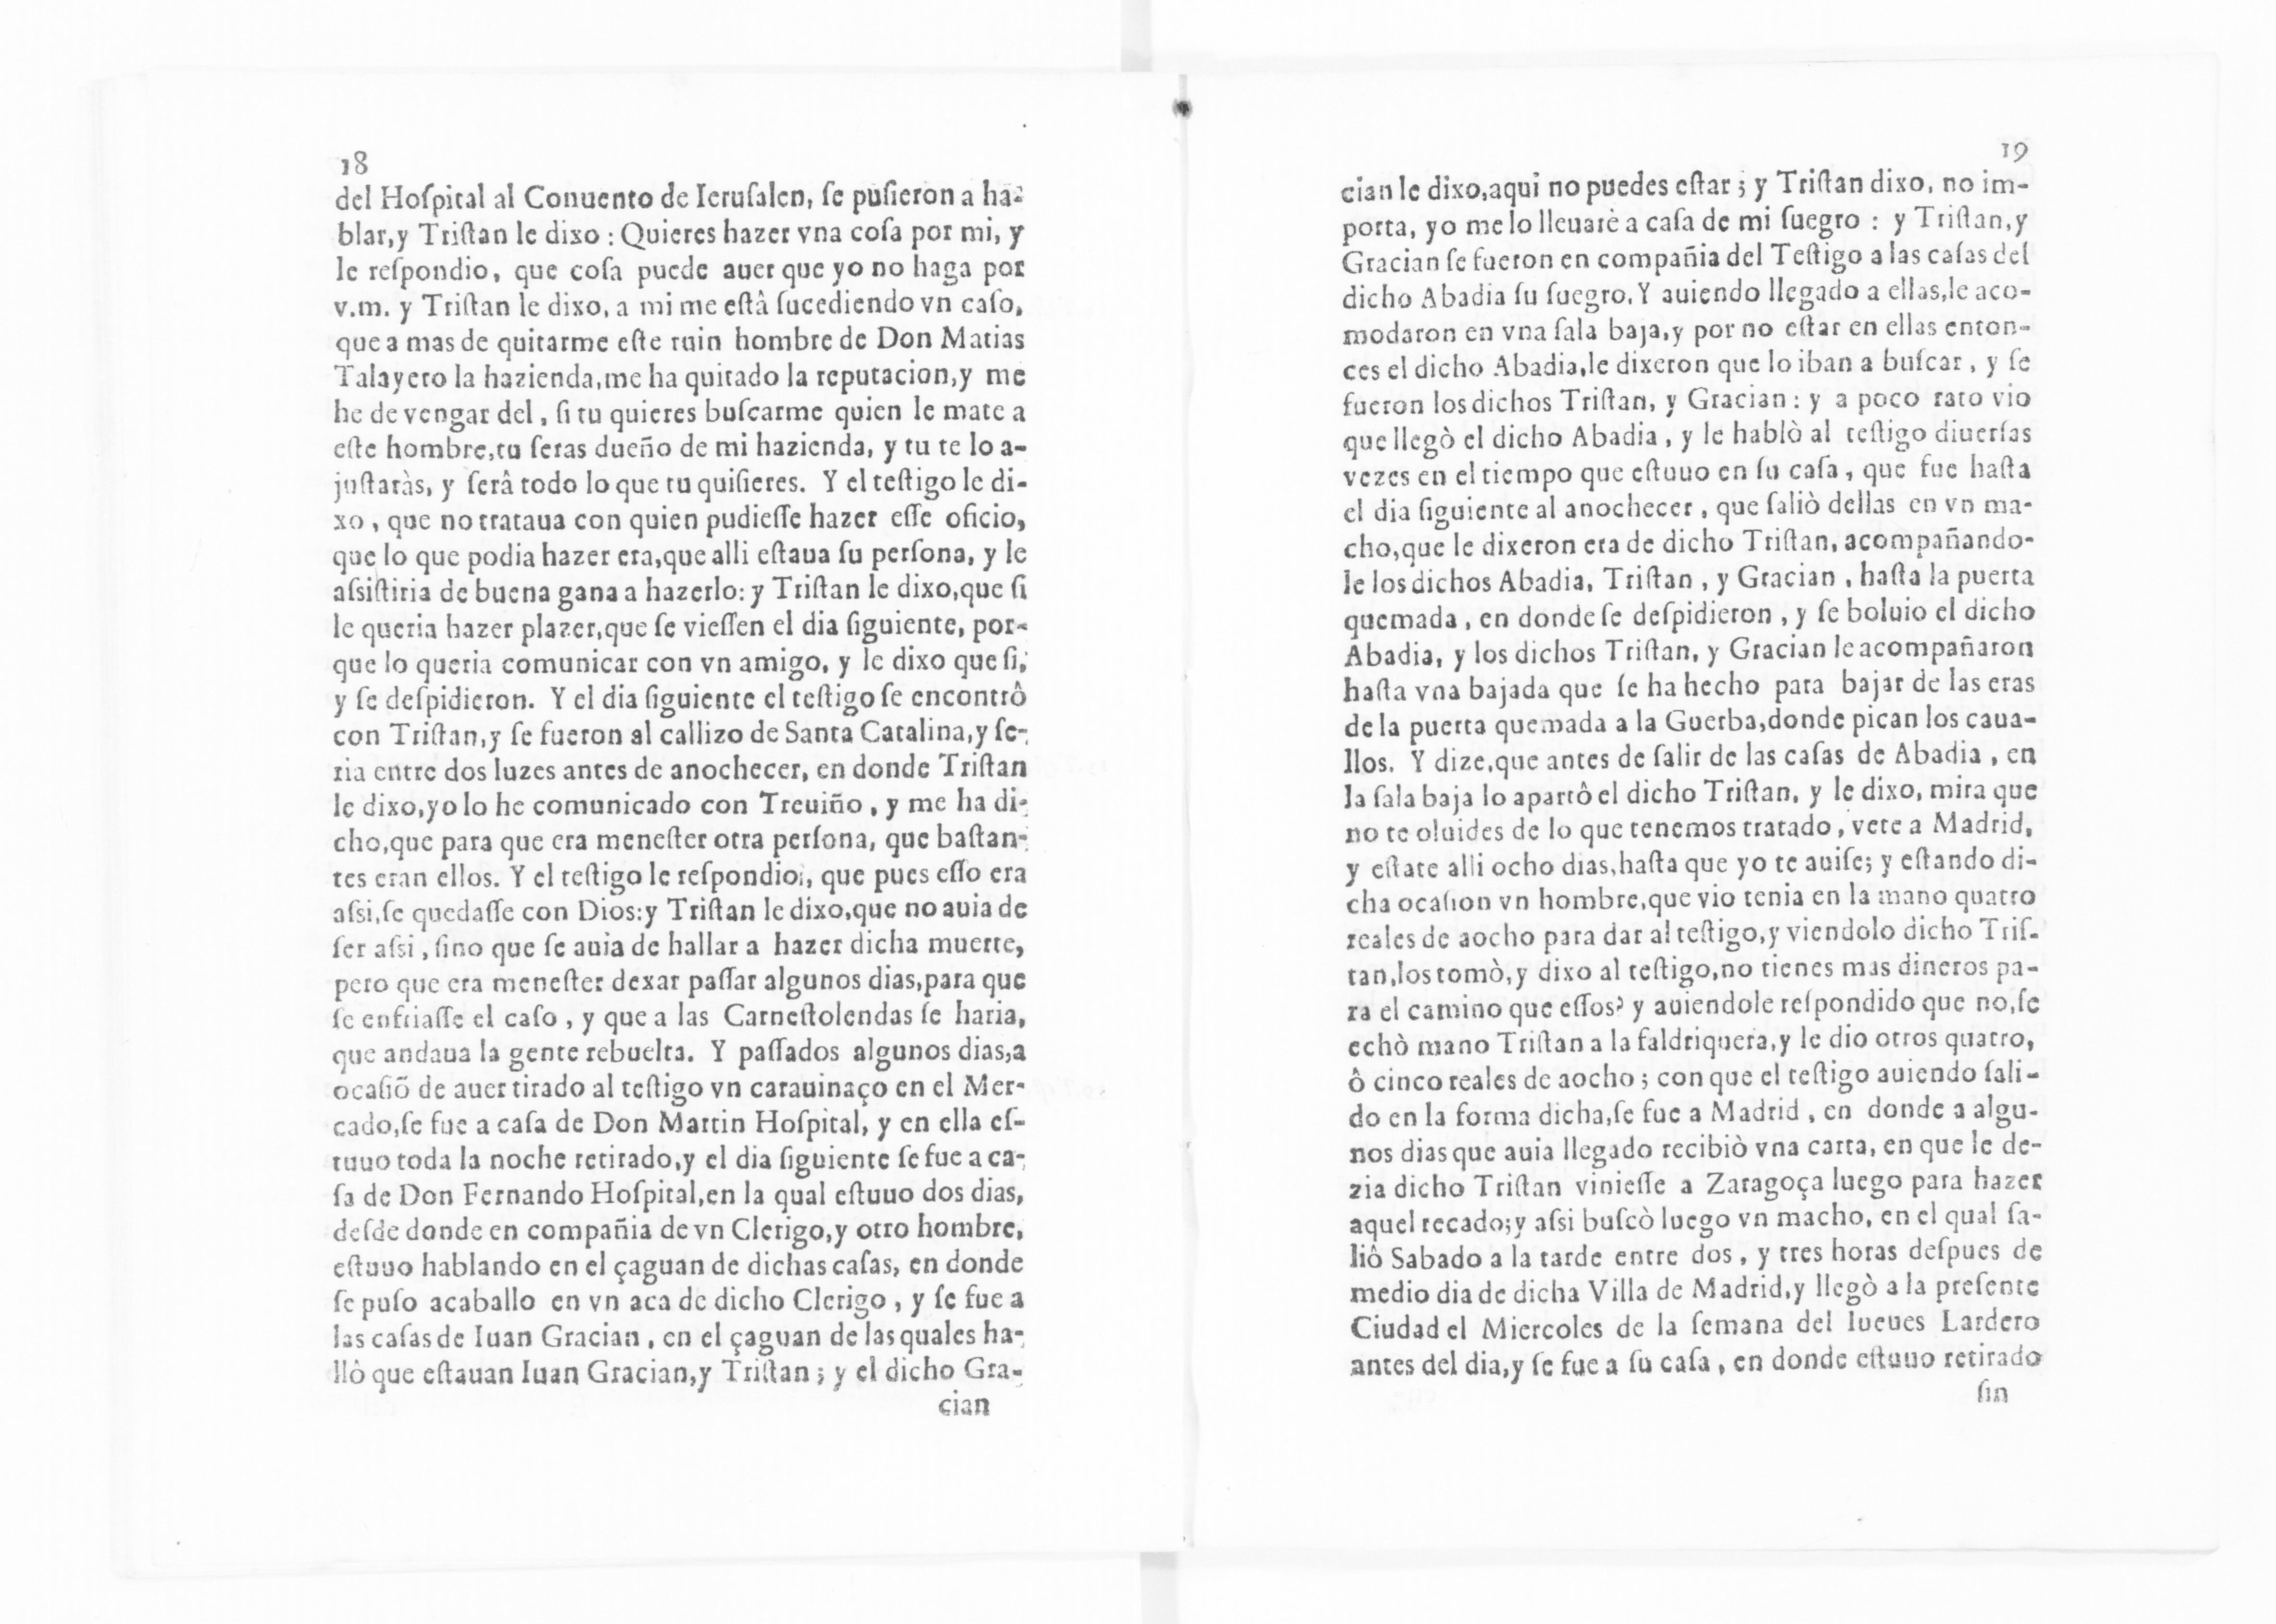 18
del Hoſpital al Conuento de Ieruſalen, ſe puſieron a ha-
blar,y Triſtan le dixo : Quieres hazer vna coſa por mi, y
le reſpondio, que coſa puede auer que yo no haga por
v.m. y Triſtan le dixo, a mi me eſtâ ſucediendo vn caſo,
que a mas de quitarme eſte ruin hombre de Don Matias
Talayero la hazienda,me ha quitado la reputacion,y me
he de vengar del , ſi tu quieres buſcarme quien le mate a
eſte hombre,tu ſeras dueño de mi hazienda, y tu te lo a-
juſtaràs, y ſerâ todo lo que tu quiſieres. Y el teſtigo le di-
xo , que no trataua con quien pudieſſe hazer eſſe oficio,
que lo que podia hazer era,que alli eſtaua ſu perſona, y le
aſsiſtiria de buena gana a hazerlo: y Triſtan le dixo,que ſi
le queria hazer plazer,que ſe vieſſen el dia ſiguiente, por-
que lo queria comunicar con vn amigo, y le dixo que ſi,
y ſe deſpidieron. Y el dia ſiguiente el teſtigo ſe encontrô
con Triſtan,y ſe fueron al callizo de Santa Catalina,y ſe-
ria entre dos luzes antes de anochecer, en donde Triſtan
le dixo,yo lo he comunicado con Treuiño , y me ha di-
cho,que para que era meneſter otra perſona, que baſtan-
tes eran ellos. Y el teſtigo le reſpondio, que pues eſſo era
aſsi,ſe quedaſſe con Dios:y Triſtan le dixo,que no auia de
ſer aſsi , ſino que ſe auia de hallar a hazer dicha muerte,
pero que era meneſter dexar paſſar algunos dias,para que
ſe enfriaſſe el caſo , y que a las Carneſtolendas ſe haria,
que andaua la gente rebuelta. Y paſſados algunos dias,a
ocaſiõ de auer tirado al teſtigo vn carauinaço en el Mer-
cado,ſe fue a caſa de Don Martin Hoſpital, y en ella eſ-
tuuo toda la noche retirado,y el dia ſiguiente ſe fue a ca-
ſa de Don Fernando Hoſpital,en la qual eſtuuo dos dias,
deſde donde en compañia de vn Clerigo,y otro hombre,
eſtuuo hablando en el çaguan de dichas caſas, en donde
ſe puſo acaballo en vn aca de dicho Clerigo , y ſe fue a
las caſas de Iuan Gracian , en el çaguan de las quales ha-
llò que eſtauan Iuan Gracian,y Triſtan ; y el dicho Gra-
cian
19
cian le dixo,aqui no puedes eſtar ; y Triſtan dixo, no im-
porta, yo me lo lleuarè a caſa de mi ſuegro : y Triſtan,y
Gracian ſe fueron en compañia del Teſtigo a las caſas del
dicho Abadia ſu ſuegro.Y auiendo llegado a ellas,le aco-
modaron en vna ſala baja,y por no eſtar en ellas enton-
ces el dicho Abadia,le dixeron que lo iban a buſcar , y ſe
fueron los dichos Triſtan, y Gracian : y a poco rato vio
que llegò el dicho Abadia , y le hablò al teſtigo diuerſas
vezes en el tiempo que eſtuuo en ſu caſa , que fue haſta
el dia ſiguiente al anochecer , que ſaliò dellas en vn ma-
cho,que le dixeron era de dicho Triſtan, acompañando-
le los dichos Abadia, Triſtan , y Gracian , haſta la puerta
quemada , en donde ſe deſpidieron , y ſe boluio el dicho
Abadia, y los dichos Triſtan, y Gracian le acompañaron
haſta vna bajada que ſe ha hecho para bajar de las eras
de la puerta quemada a la Guerba,donde pican los caua-
llos. Y dize,que antes de ſalir de las caſas de Abadia , en
la ſala baja lo apartô el dicho Triſtan, y le dixo, mira que
no te oluides de lo que tenemos tratado , vete a Madrid,
y eſtate alli ocho dias,haſta que yo te auiſe; y eſtando di-
cha ocaſion vn hombre,que vio tenia en la mano quatro
reales de aocho para dar al teſtigo,y viendolo dicho Triſ-
tan,los tomò,y dixo al teſtigo,no tienes mas dineros pa-
ra el camino que eſſos? y auiendole reſpondido que no,ſe
echò mano Triſtan a la faldriquera,y le dio otros quatro,
ô cinco reales de aocho ; con que el teſtigo auiendo ſali-
do en la forma dicha,ſe fue a Madrid , en donde a algu-
nos dias que auia llegado recibiò vna carta, en que le de-
zia dicho Triſtan vinieſſe a Zaragoça luego para hazer
aquel recado;y aſsi buſcò luego vn macho, en el qual ſa-
liô Sabado a la tarde entre dos , y tres horas deſpues de
medio dia de dicha Villa de Madrid,y llegò a la preſente
Ciudad el Miercoles de la ſemana del Iueues Lardero
antes del dia,y ſe fue a ſu caſa , en donde eſtuuo retirado
ſin